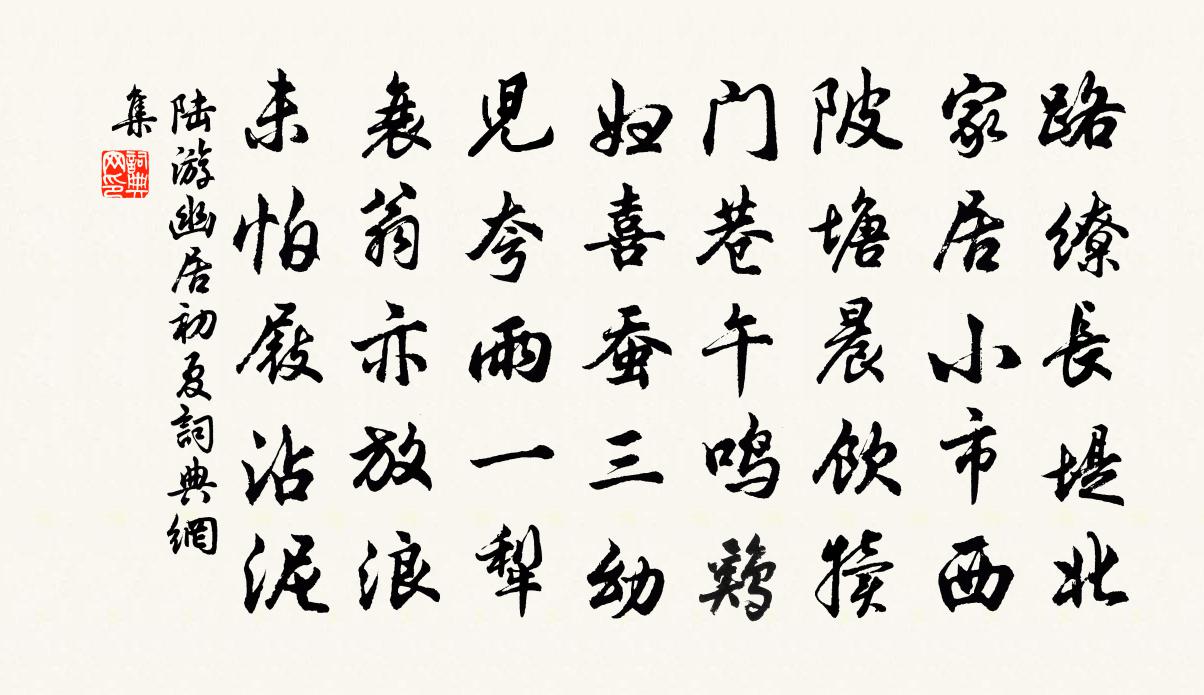 路缭長堤北
家居小市西
陂塘晨饮犊
门巷午鸣鷄
妇喜蚕三幼
児夸雨一犁
衰翁亦放浪
未怕屐沾泥
陆游幽居初夏詞典網
集
詞典网印